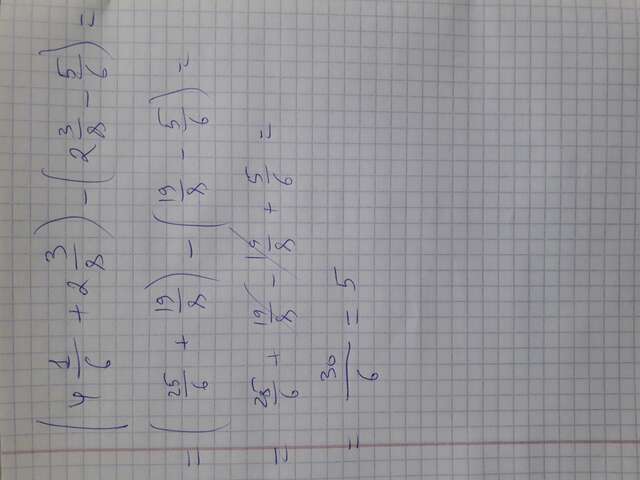 (4 1/6 + 2 3/8) - (2 3/8 - 5/6) =
= (25/6 + 19/8) - (19/8 - 5/6) =
= 25/6 + 19/8 - 19/8 + 5/6 =
= 30/6 = 5